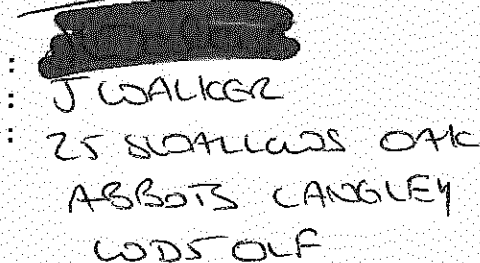 : 
: J WALKER
: 25 SWALLOWS OAK
ABBOTS LANGLEY
WD5 0LF